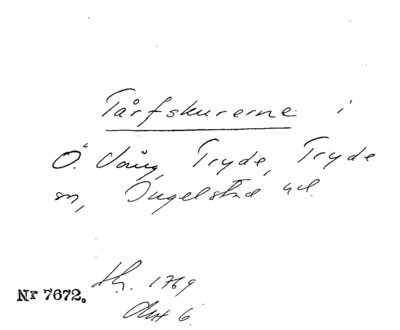 Tårfskurerne i
Ö. Vång, Tryde, Tryde
sn, Ingelstad hd.
Nr 7672.
1769
Akt 6